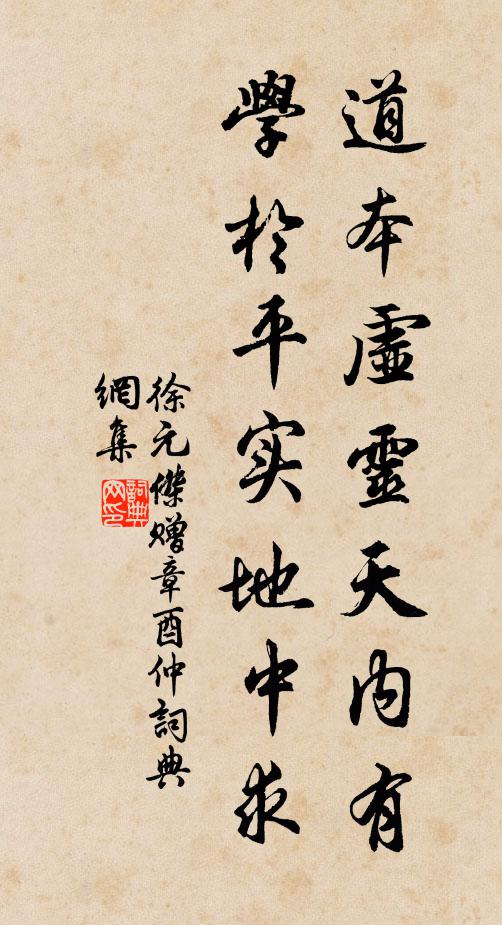 道本虛靈天内有
學於平实地中求
徐元傑贈章酉仲詞典
網集
詞典
网印